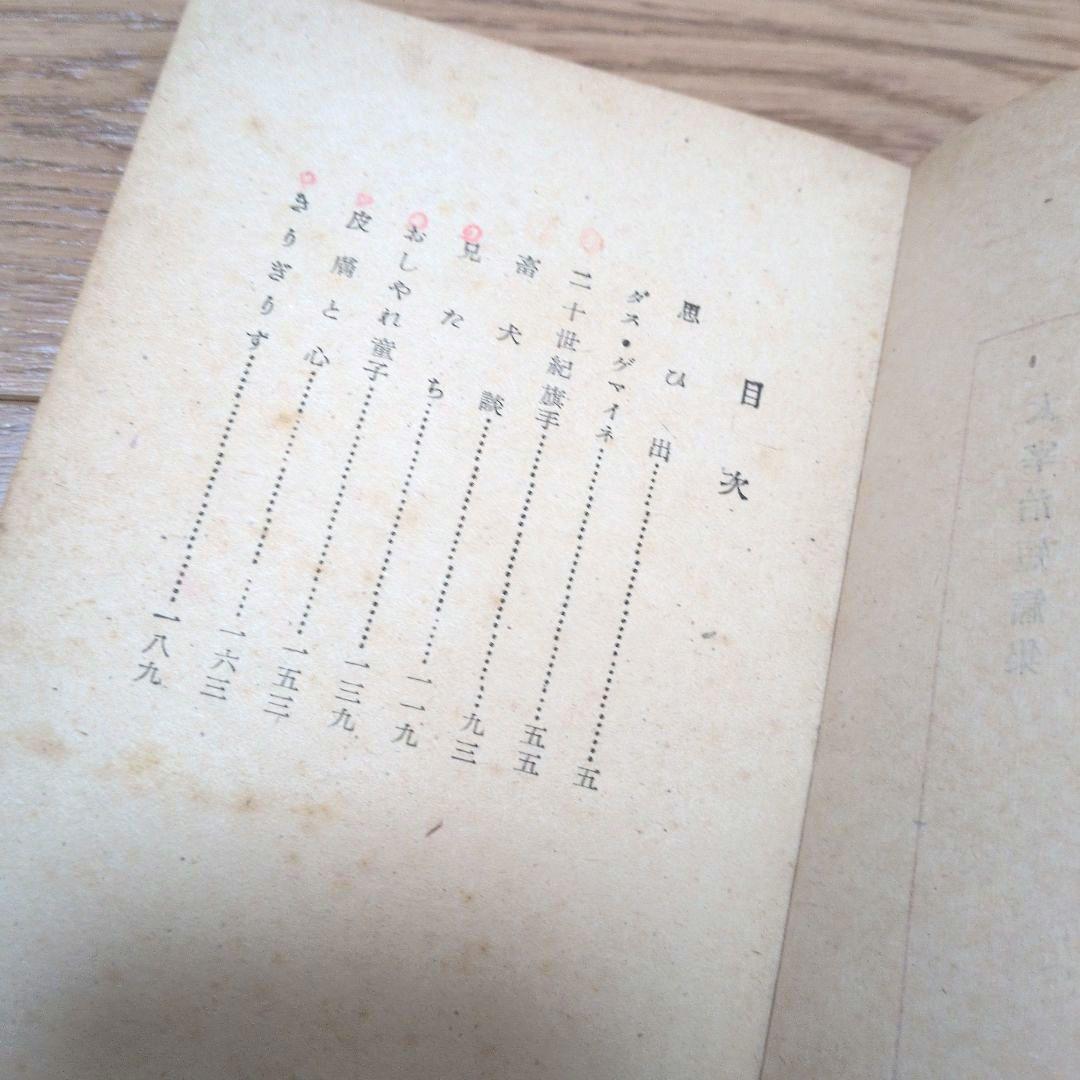 太宰治短篇集
目次
思ひ出……………………五
ダス・ゲマイネ……………………五五
二十世紀旗手……………………九三
畜犬談……………………一一九
兄たち……………………一三九
おしやれ童子……………………一五三
皮膚と心……………………一六三
きりぎりす……………………一八九